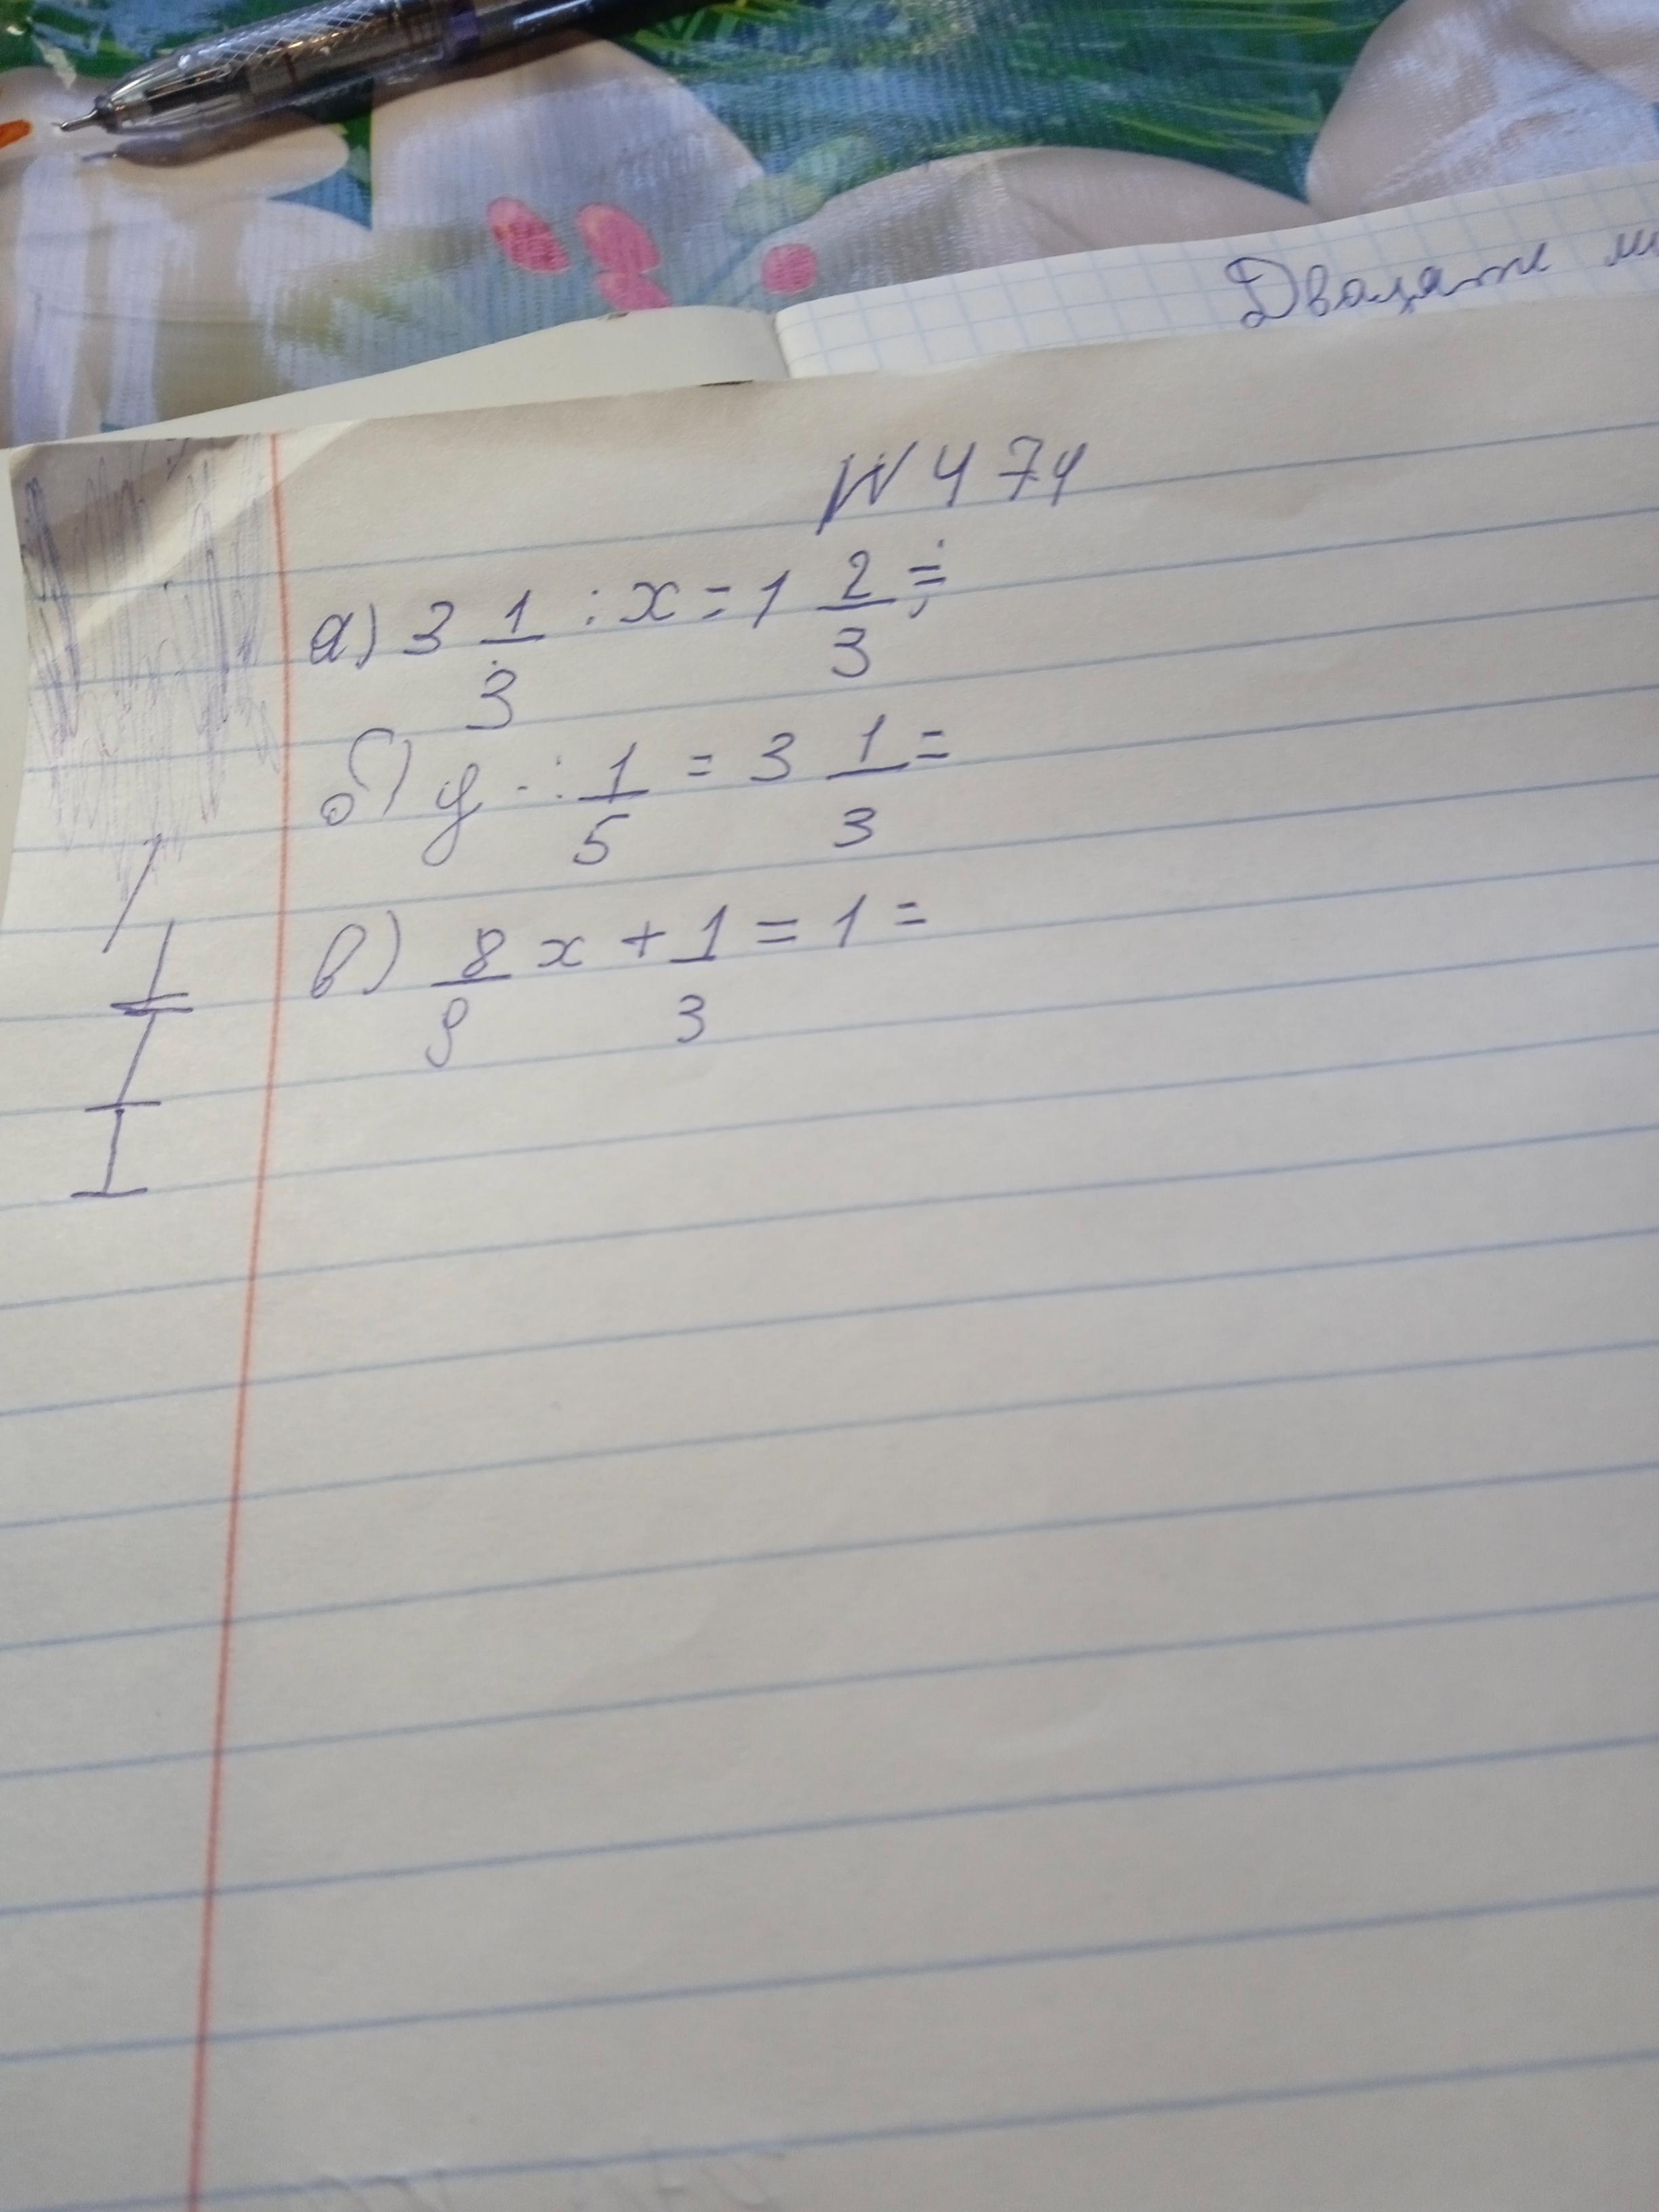 Двадцяте
№ 474
а) 3 1/3 : x = 1 2/3 =
б) y : 1/5 = 3 1/3 =
в) 8/9 x + 1/3 = 1 =